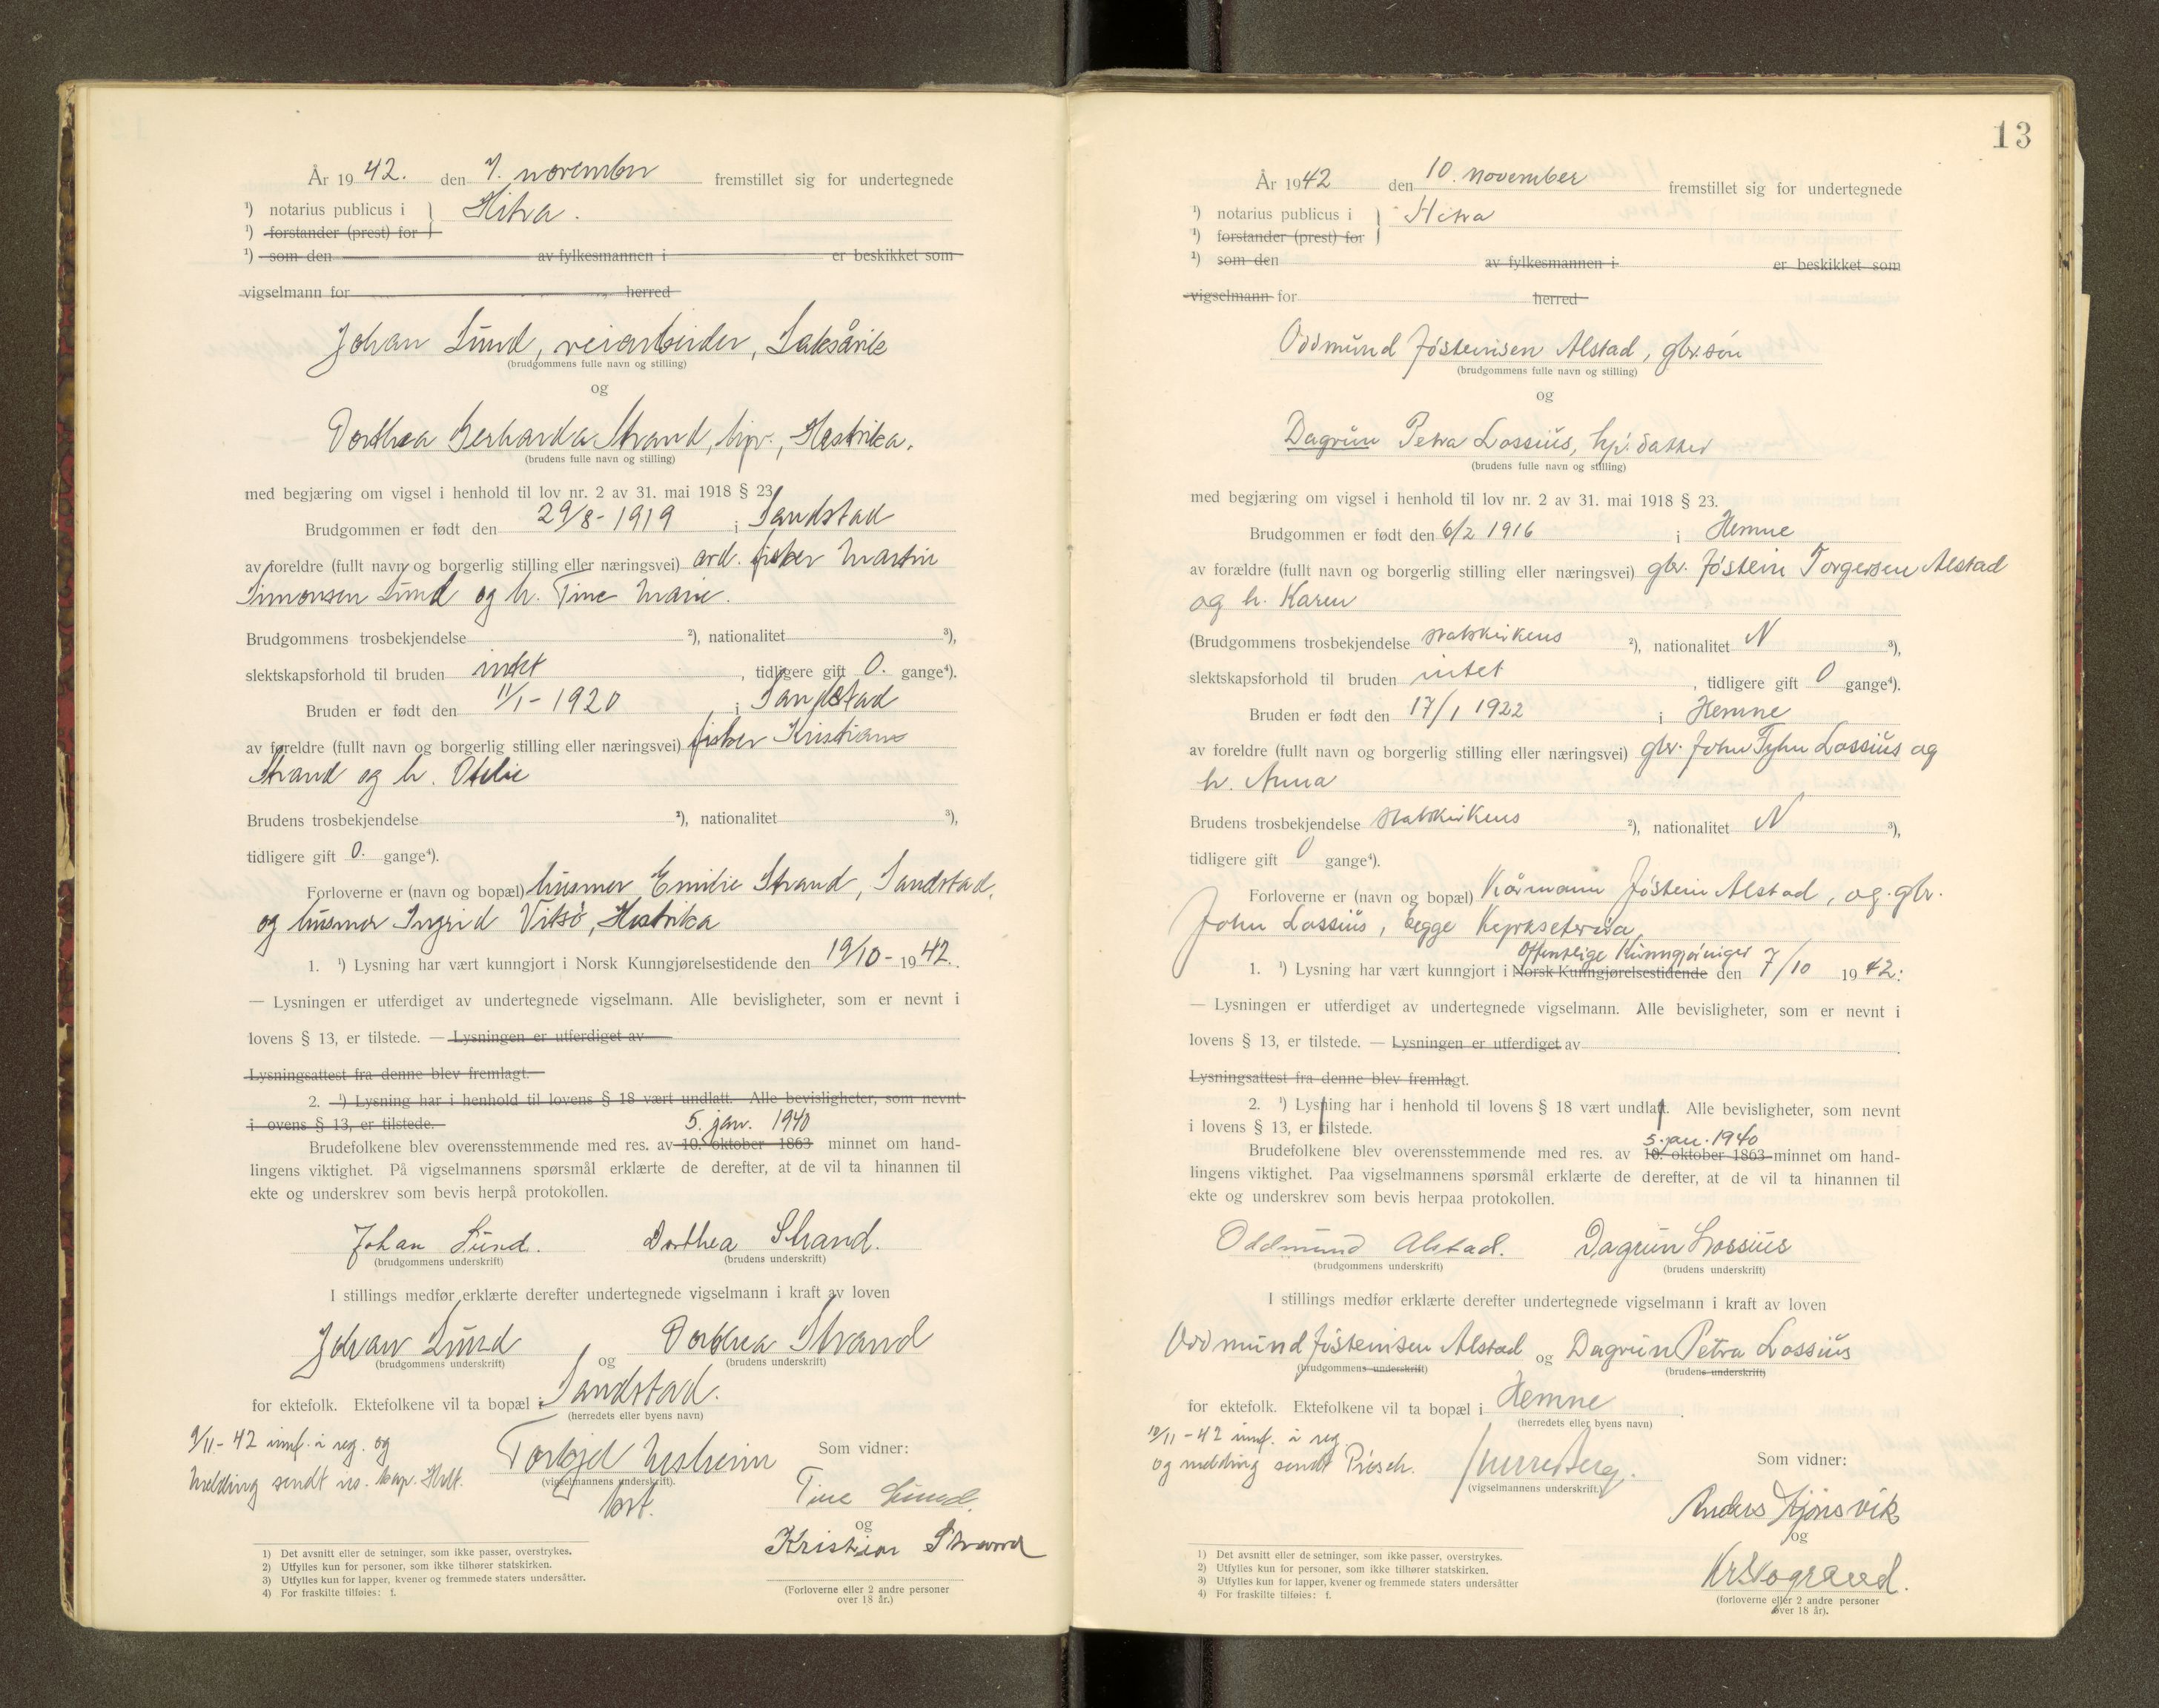 År 1942. den 7. november fremstillet sig for undertegnede
¹) notarius publicus i } Hitra.
¹) forstander (prest) for
¹) som den av fylkesmannen i er beskikket som
vigselmann for herred
Johan Lund, veiarbeider, Laksåvik
(brudgommens fulle navn og stilling)
og
Dorthea Gerharda Strand, hjv., Hestvika.
(brudens fulle navn og stilling)
med begjæring om vigsel i henhold til lov nr. 2 av 31. mai 1918 § 23.
Brudgommen er født den 29/8-1919 i Sandstad
av foreldre (fullt navn og borgerlig stilling eller næringsvei) arb. fisker Martin
Simonsen Lund og h. Tine Marie.
Brudgommens trosbekjendelse ²), nationalitet ³),
slektskapsforhold til bruden intet, tidligere gift 0. gange⁴).
Bruden er født den 11/1-1920 i Sandstad
av foreldre (fullt navn og borgerlig stilling eller næringsvei) fisker Kristian
Strand og h. Otelie
Brudens trosbekjendelse ²), nationalitet ³),
tidligere gift 0. gange⁴).
Forloverne er (navn og bopæl) husmor Emilie Strand, Sandstad,
og husmor Ingrid Vitsø, Hestvika
1. ¹) Lysning har vært kunngjort i Norsk Kunngjørelsestidende den 19/10-1942.
— Lysningen er utferdiget av undertegnede vigselmann. Alle bevisligheter, som er nevnt i
lovens § 13, er tilstede. — Lysningen er utferdiget av
Lysningsattest fra denne blev fremlagt.
2. ¹) Lysning har i henhold til lovens § 18 vært undlatt. Alle bevisligheter, som nevnt
i ovens § 13, er tilstede.
5. jan. 1940
Brudefolkene blev overensstemmende med res. av 10. oktober 1863 minnet om hand-
lingens viktighet. På vigselmannens spørsmål erklærte de derefter, at de vil ta hinannen til
ekte og underskrev som bevis herpå protokollen.
Johan Lund. Dorthea Strand.
(brudgommens underskrift) (brudens underskrift)
I stillings medfør erklærte derefter undertegnede vigselmann i kraft av loven
Johan Lund og Dorthea Strand
(brudgommens underskrift) (brudens underskrift)
for ektefolk. Ektefolkene vil ta bopæl i Sandstad.
(herredets eller byens navn)
9/11-42 innf. i reg. og
melding sendt res. kap. Holt.
(vigselmannens underskrift).
Som vidner:
Tine Lund
og
Kristian Strand
(Forloverne eller 2 andre personer
over 18 år.)
1) Det avsnitt eller de setninger, som ikke passer, overstrykes.
2) Utfylles kun for personer, som ikke tilhører statskirken.
3) Utfylles kun for lapper, kvener og fremmede staters undersåtter.
4) For fraskilte tilføies: f.
13
År 1942 den 10. november fremstillet sig for undertegnede
¹) notarius publicus i } Hitra
¹) forstander (prest) for
¹) som den av fylkesmannen i er beskikket som
vigselmann for herred
Oddmund Jøsteinsen Alstad, gbr.søn
(brudgommens fulle navn og stilling)
og
Dagrun Petra Lossius, hj. datter
(brudens fulle navn og stilling)
med begjæring om vigsel i henhold til lov nr. 2 av 31. mai 1918 § 23.
Brudgommen er født den 6/2 1916 i Hemne
av forældre (fullt navn og borgerlig stilling eller næringsvei) gbr. Jøstein Torgersen Alstad
og h. Karen
(Brudgommens trosbekjendelse statskirkens ²), nationalitet N ³),
slektskapsforhold til bruden intet, tidligere gift 0 gange⁴).
Bruden er født den 17/1 1922 i Hemne
av foreldre (fullt navn og borgerlig stilling eller næringsvei) gbr. John Tyhn Lossius og
h. Anna
Brudens trosbekjendelse statskirkens ²), nationalitet N ³),
tidligere gift 0 gange⁴).
Forloverne er (navn og bopæl) Kårmann Jøstein Alstad, og gbr.
John Lossius, begge
Offentlige Kunngjøringer
1. ¹) Lysning har vært kunngjort i Norsk Kunngjørelsestidende den 7/10 1942:
— Lysningen er utferdiget av undertegnede vigselmann. Alle bevisligheter, som er nevnt i
lovens § 13, er tilstede. — Lysningen er utferdiget av
Lysningsattest fra denne blev fremlagt.
2. ¹) Lysning har i henhold til lovens § 18 vært undlatt. Alle bevisligheter, som nevnt
i lovens § 13, er tilstede.
5. jan. 1940
Brudefolkene blev overensstemmende med res. av 10. oktober 1863 minnet om hand-
lingens viktighet. Paa vigselmannens spørsmål erklærte de derefter, at de vil ta hinannen til
ekte og underskrev som bevis herpaa protokollen.
Oddmund Alstad. Dagrun Lossius
(brudgommens underskrift) (brudens underskrift)
I stillings medfør erklærte derefter undertegnede vigselmann i kraft av loven
Oddmund Jøsteinsen Alstad og Dagrun Petra Lossius
(brudgommens underskrift) (brudens underskrift)
for ektefolk. Ektefolkene vil ta bopæl i Hemne.
(herredets eller byens navn)
10/11-42 innf. i reg.
og melding sendt
(vigselmannens underskrift.)
Som vidner:
Anders
og
(forloverne eller 2 andre personer
over 18 år).
1) Det avsnitt eller de setninger, som ikke passer, overstrykes.
2) Utfylles kun for personer, som ikke tilhører statskirken.
3) Utfylles kun for lapper, kvener og fremmede staters undersåtter
4) For fraskilte tilføies: f.